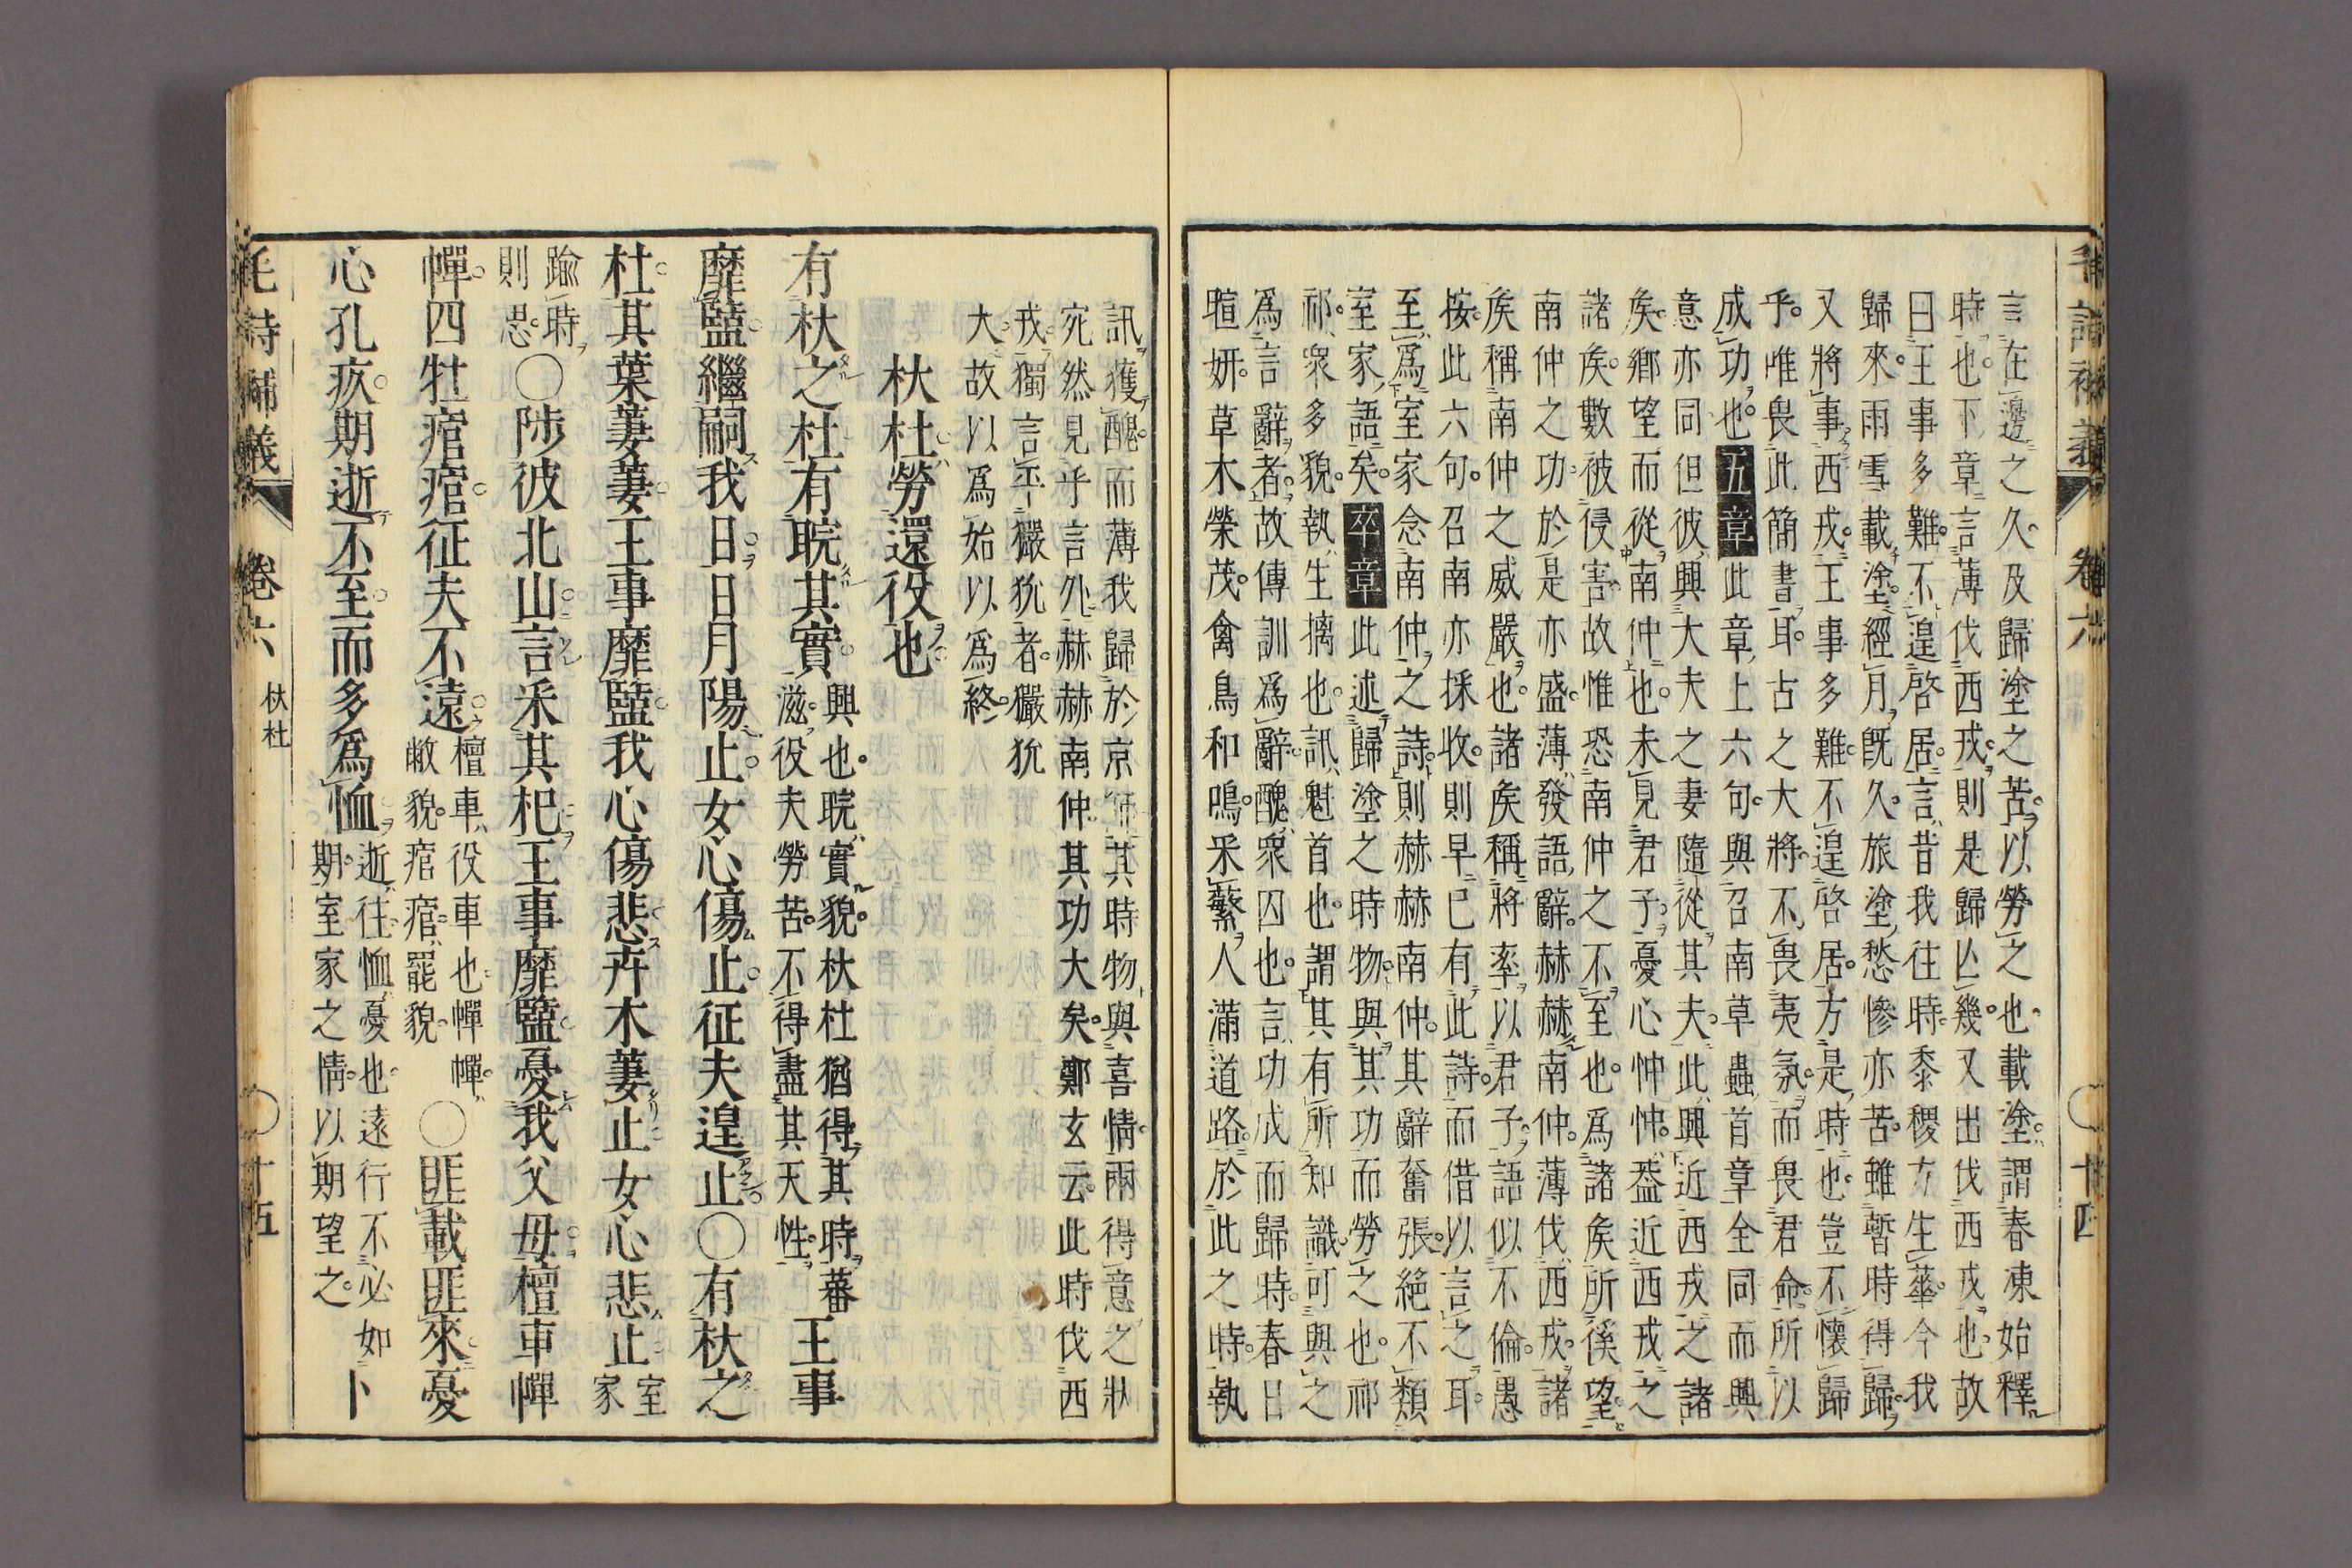 毛詩補義 卷六 〇十四
言在邊之久及歸塗之苦以勞之也載塗謂春凍始釋
時也下章言薄伐西戎則是歸以幾又出伐西戎也故
曰王事多難不遑啓居言昔我往時黍稷方生華今我
歸來雨雪載塗經月既久旅塗愁慘亦苦雖暫時得歸
又將事西戎王事多難不遑啓居方是時也豈不懷歸
乎唯畏此簡書耳古之大將不畏夷氛而畏君命所以
成功也五章此章上六句與召南草蟲首章全同而興
意亦同但彼興大夫之妻隨從其夫此興近西戎之諸
矦鄉望而從南仲也未見君子憂心忡忡葢近西戎之
諸矦數被侵害故惟恐南仲之不至也爲諸矦所徯望
南仲之功於是亦盛薄發語辭赫赫南仲薄伐西戎諸
矦稱南仲之威嚴也諸矦稱將率以君子語似不倫愚
按此六句召南亦採收則早已有此詩而借以言之耳
至爲室家念南仲之詩則赫赫南仲其辭奮張絕不類
室家語矣卒章此述歸塗之時物與其功而勞之也祁
祁衆多貌執生擒也訊魁首也謂其有所知識可與之
爲言辭者故傳訓爲辭醜衆囚也言功成而歸時春日
暄妍草木榮茂禽鳥和鳴采蘩人滿道路於此之時執
訊獲醜而薄我歸於京師其時物與喜情兩得意之狀
宛然見乎言外赫赫南仲其功大矣鄭玄云此時伐西
戎獨言平玁狁者玁狁
大故以爲始以爲終
杕杜勞還役也
有杕之杜有睆其實興也睆實貌杕杜猶得其時蕃
滋役夫勞苦不得盡其天性王事
靡盬繼嗣我日日月陽止女心傷止征夫遑止〇有杕之
杜其葉萋萋王事靡盬我心傷悲卉木萋止女心悲止室
家
踰時
則思〇陟彼北山言采其杞王事靡盬憂我父母檀車幝
幝四牡痯痯征夫不遠檀車役車也幝幝
敝貌痯痯罷貌〇匪載匪來憂
心孔疚期逝不至而多爲恤逝往恤憂也遠行不必如
期室家之情以期望之卜
毛詩補義 卷六 杕杜 〇十五